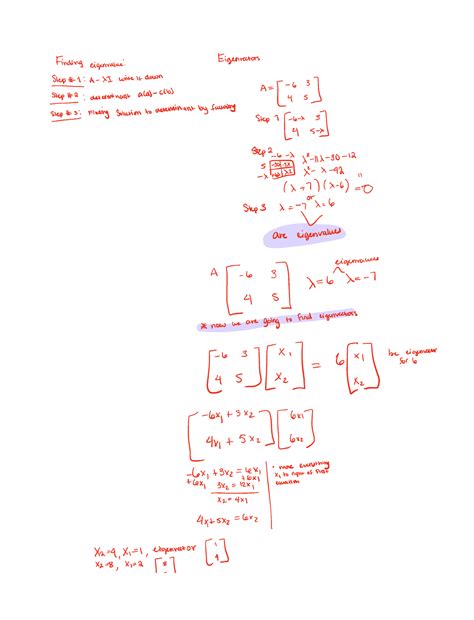 Finding eigenvalue:
Step #1: A - λI write it down
Step #2: determinant a(d)-c(b)
Step #3: Finding Solution to determinant by factoring
Eigenvectors
A = [-6 3
4 5]
Step 1 [-6-λ 3
4 5-λ]
Step 2
-6 -λ
5
-λ
λ²-11λ-30-12
λ²-λ-42
(λ+7)(λ-6)=0
Step 3 λ=-7 or λ=6
are eigenvalues
A [-6 3
4 5]
eigenvalues
λ=6 λ=-7
* now we are going to find eigenvectors
[-6 3
4 5] [x₁
x₂] = 6 [x₁
x₂]
be eigenvector for 6
[-6x₁ + 3x₂
4x₁ + 5x₂] [6x₁
6x₂]
-6x₁ + 3x₂ = 6x₁
+6x₁ +6x₁
3x₂ = 12x₁
x₂ = 4x₁
• move everything
x₁ to right of first
equation
4x₁+5x₂ = 6x₂
X₂=4, X₁=1, eigenvector [1
4]
x₂=8, x₁=2